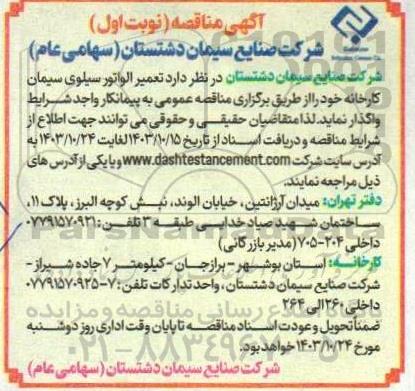 آگهی مناقصه (نوبت اول)
شرکت صنایع سیمان دشتستان (سهامی عام)
شرکت صنایع سیمان دشتستان در نظر دارد تعمیر الواتور سیلوی سیمان
کارخانه خود را از طریق برگزاری مناقصه عمومی به پیمانکار واجد شرایط
واگذار نماید. لذا متقاضیان حقیقی و حقوقی می توانند جهت اطلاع از
شرایط مناقصه و دریافت اسناد از تاریخ ۱۴۰۳/۱۰/۱۵ لغایت ۱۴۰۳/۱۰/۲۴ به
آدرس سایت شرکت www.dashtestancement.com و یا یکی از آدرس های
ذیل مراجعه نمایند.
دفتر تهران: میدان آرژانتین، خیابان الوند، نبش کوچه البرز، پلاک ۱۱،
ساختمان شهید صیاد خدایی طبقه ۳ تلفن: ۰۷۷۹۱۵۷۰۹۲۱
داخلی ۲۰۴-۷۰۵ (مدیر بازرگانی)
کارخانه: استان بوشهر - برازجان - کیلومتر ۷ جاده شیراز -
شرکت صنایع سیمان دشتستان، واحد تدارکات تلفن: ۷-۰۷۷۹۱۵۷۰۹۲۵
داخلی ۲۶۰ الی ۲۶۴
ضمناً تحویل و عودت اسناد مناقصه تا پایان وقت اداری روز دوشنبه
مورخ ۱۴۰۳/۱۰/۲۴ خواهد بود.
شرکت صنایع سیمان دشتستان (سهامی عام)